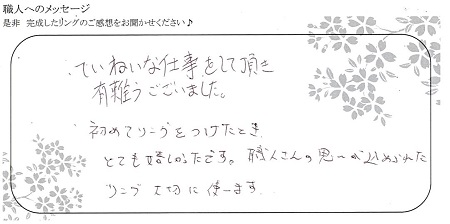 職人へのメッセージ
是非 完成したリングのご感想をお聞かせください♪
ていねいな仕事をして頂き
有難うございました。
初めてリングをつけたとき
とても嬉しかったです。職人さんの思いが込められた
リング大切に使います